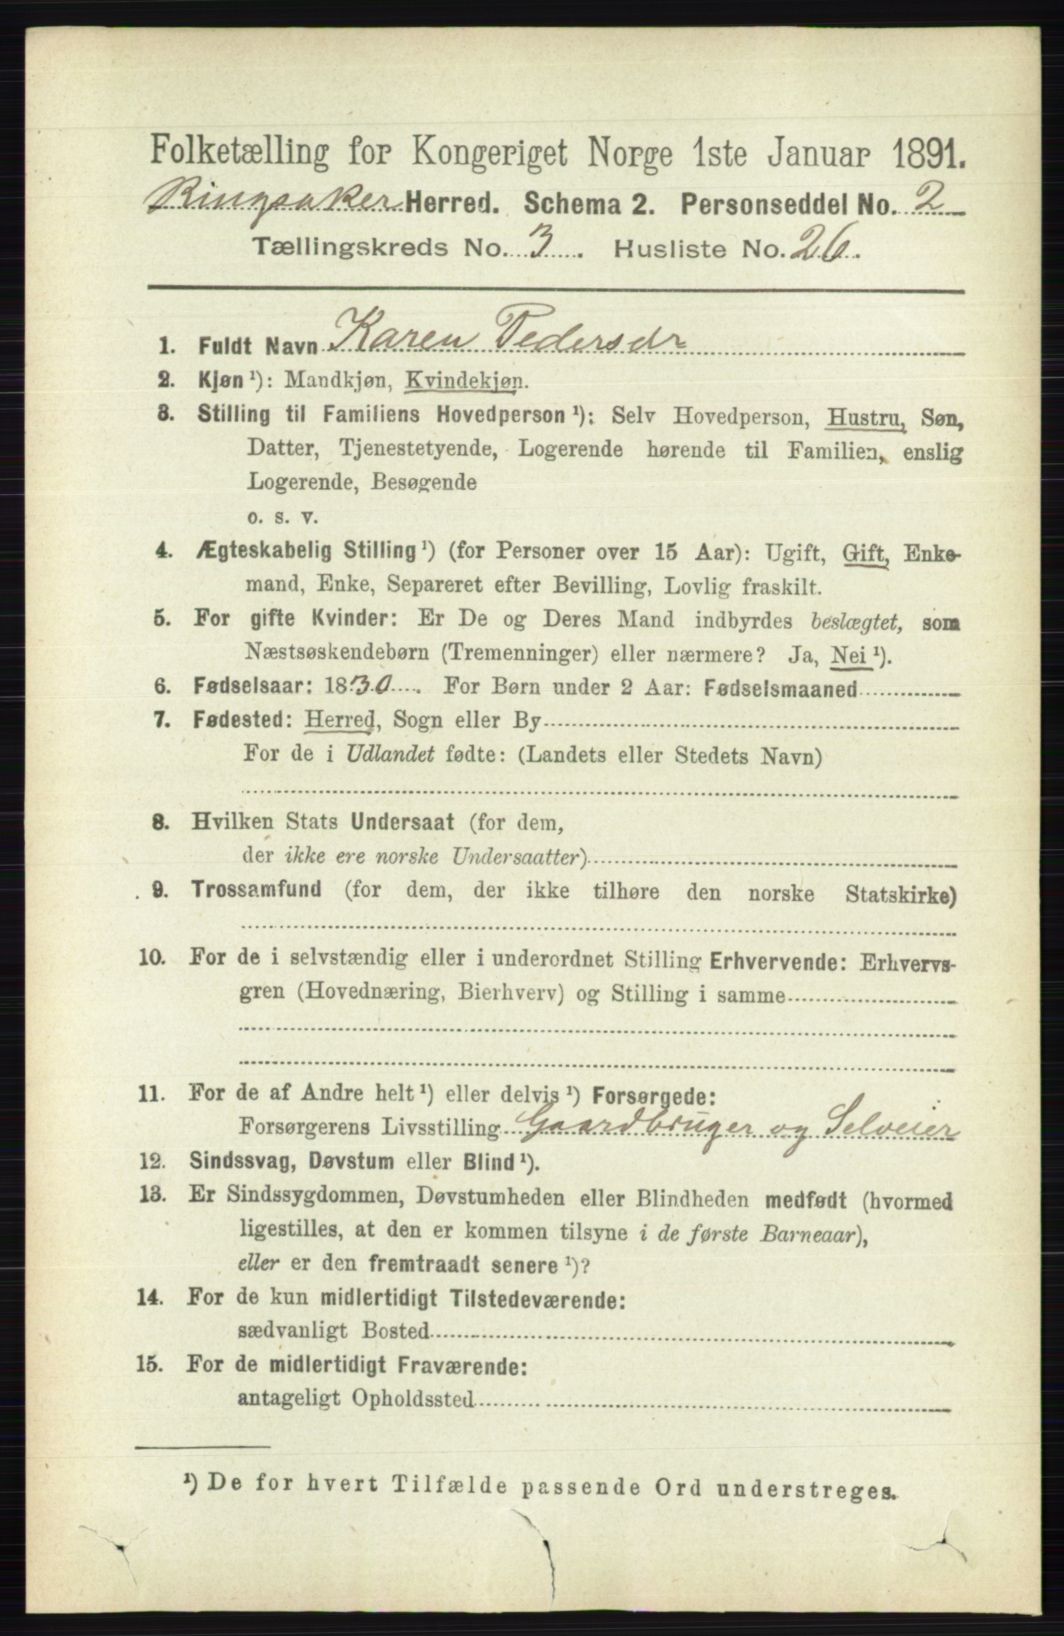 Folketælling for Kongeriget Norge 1ste Januar 1891.
Ringsaker Herred. Schema 2. Personseddel No. 2
Tællingskreds No. 3. Husliste No. 26.
1. Fuldt Navn Karen Pedersdr
2. Kjøn ¹): Mandkjøn, Kvindekjøn.
3. Stilling til Familiens Hovedperson ¹): Selv Hovedperson, Hustru, Søn,
Datter, Tjenestetyende, Logerende hørende til Familien, enslig
Logerende, Besøgende
o. s. v.
4. Ægteskabelig Stilling ¹) (for Personer over 15 Aar): Ugift, Gift, Enke-
mand, Enke, Separeret efter Bevilling, Lovlig fraskilt.
5. For gifte Kvinder: Er De og Deres Mand indbyrdes beslægtet, som
Næstsøskendebørn (Tremenninger) eller nærmere? Ja, Nei ¹).
6. Fødselsaar: 1830. For Børn under 2 Aar: Fødselsmaaned
7. Fødested: Herred, Sogn eller By
For de i Udlandet fødte: (Landets eller Stedets Navn)
8. Hvilken Stats Undersaat (for dem,
der ikke ere norske Undersaatter)
9. Trossamfund (for dem, der ikke tilhøre den norske Statskirke)
10. For de i selvstændig eller i underordnet Stilling Erhvervende: Erhvervs-
gren (Hovednæring, Bierhverv) og Stilling i samme
11. For de af Andre helt ¹) eller delvis ¹) Forsørgede:
Forsørgerens Livsstilling Gaardbruger og Selveier
12. Sindssvag, Døvstum eller Blind ¹).
13. Er Sindssygdommen, Døvstumheden eller Blindheden medfødt (hvormed
ligestilles, at den er kommen tilsyne i de første Barneaar),
eller er den fremtraadt senere ¹)?
14. For de kun midlertidigt Tilstedeværende:
sædvanligt Bosted
15. For de midlertidigt Fraværende:
antageligt Opholdssted
¹) De for hvert Tilfælde passende Ord understreges.